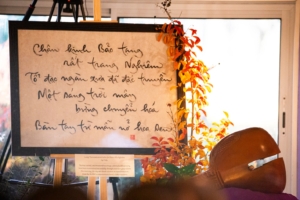 Chân kinh Bảo tạng
rất trang nghiêm
Tổ đạo ngàn xưa đã độc truyền
Một sáng trời mây
bừng chuyển hoá
Bàn tay từ mẫn nở hoa